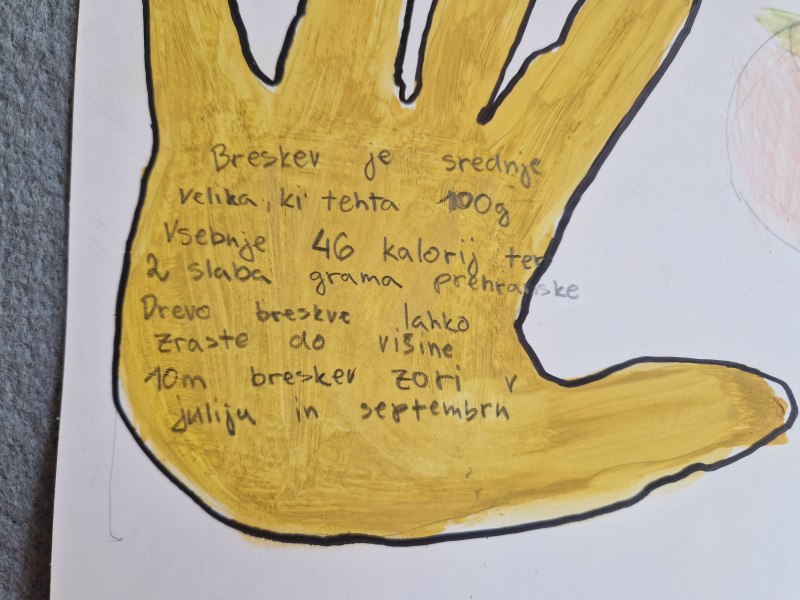 Breskev je srednje
velika, ki tehta 100g
Vsebnje 46 kalorij ter
2 slaba grama prehranske
Drevo breskve lahko
zraste do višine
10m breskev zori v
juliju in septembrn